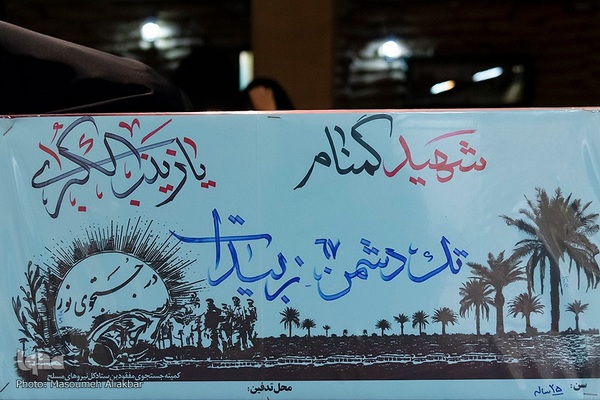 شهید گمنام
یا زینب الکبری
تک دشمن ۶۷ زبیدات
در جستجوی نور
کمیته جستجوی مفقودین ستاد کل نیروهای مسلح
سن: ۲۵ ساله
محل تدفین:
Photo: Masoumeh Aliakbar